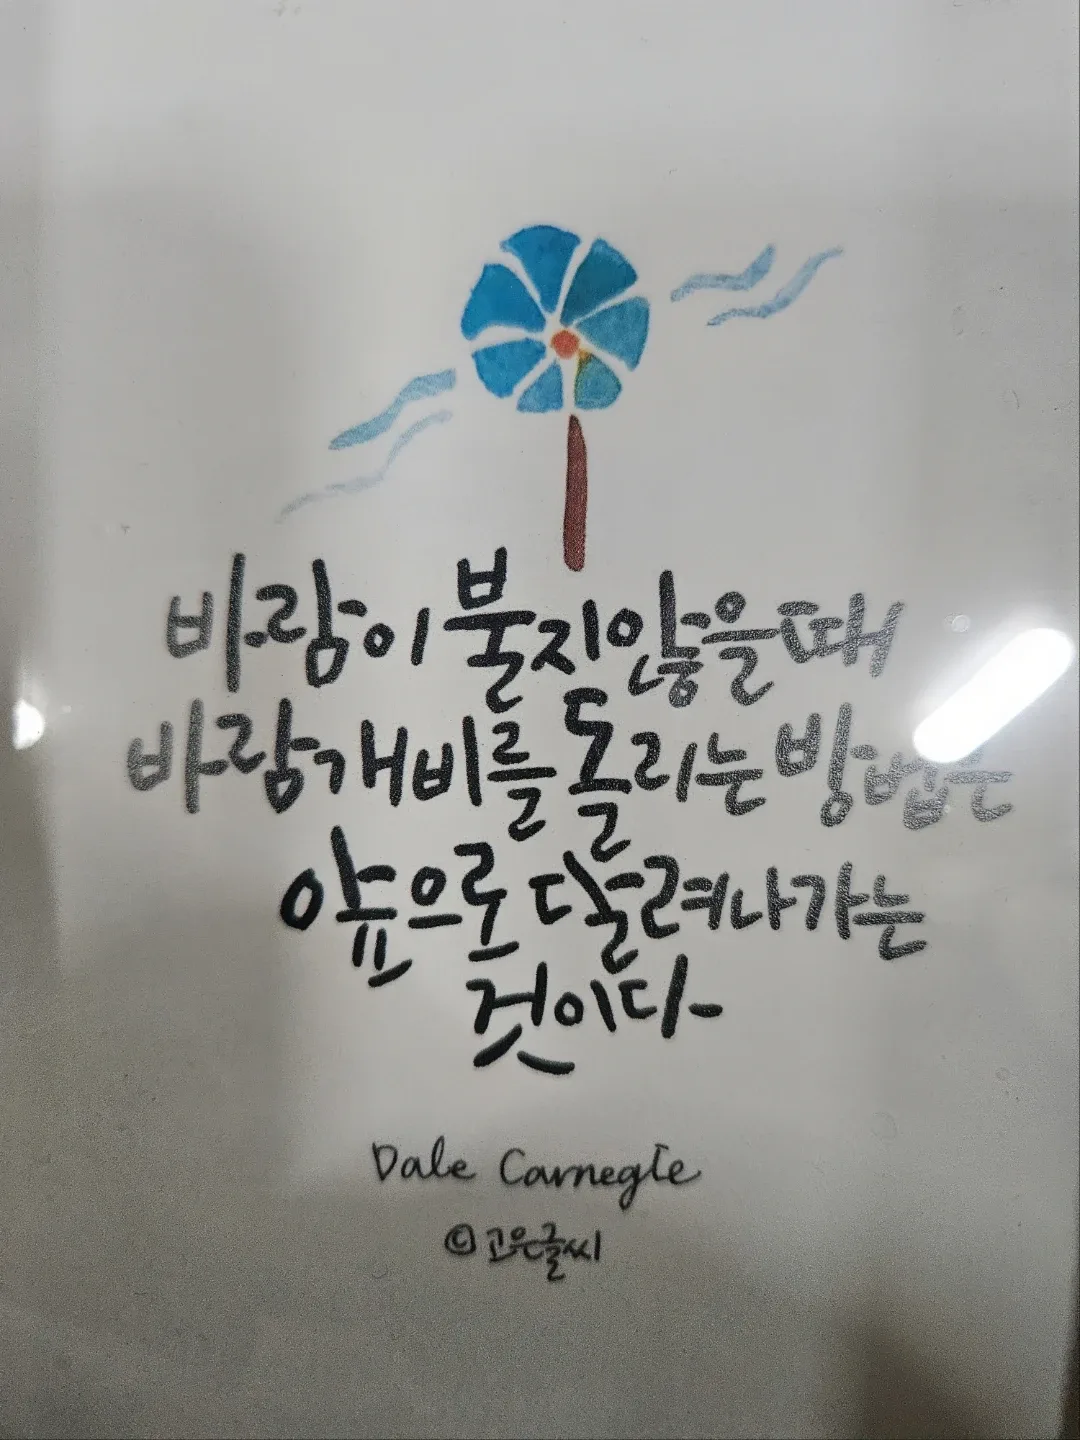 바람이 불지않을 때
바람개비를 돌리는 방법은
앞으로 달려나가는
것이다
Dale Carnegie
© 고운글씨